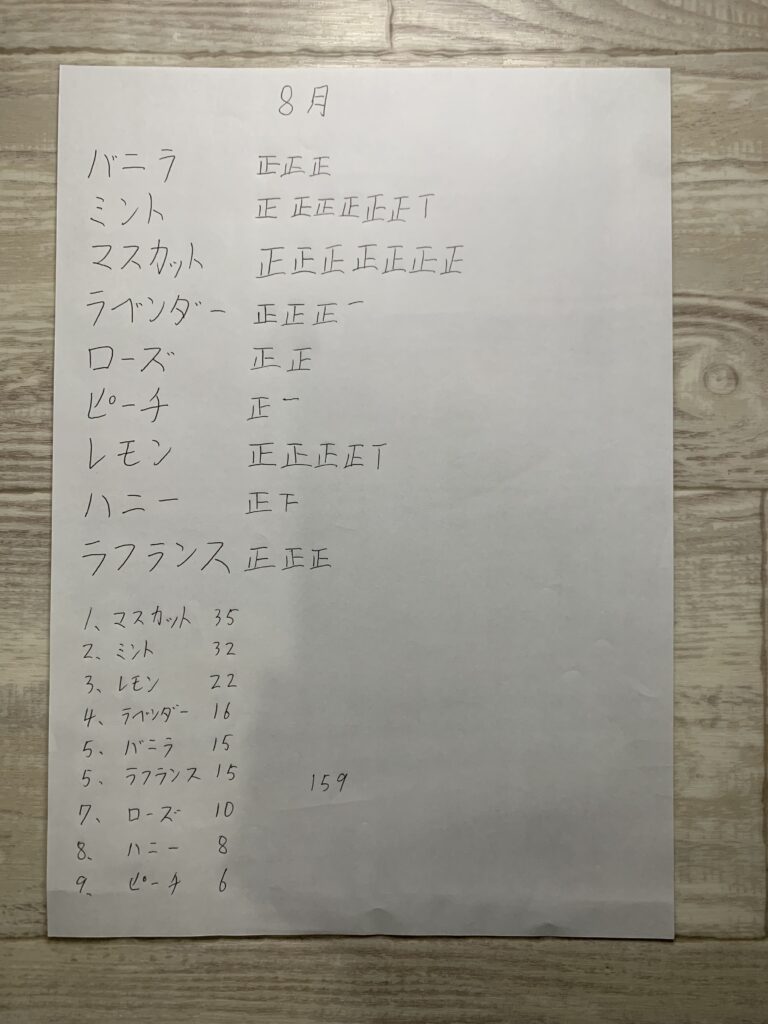 8月
バニラ 正正正
ミント 正正正正正正丅
マスカット 正正正正正正正
ラベンダー 正正正一
ローズ 正正
ピーチ 正一
レモン 正正正正丅
ハニー 正下
ラフランス 正正正
1、マスカット 35
2、ミント 32
3、レモン 22
4、ラベンダー 16
5、バニラ 15
5、ラフランス 15
159
7、ローズ 10
8、ハニー 8
9、ピーチ 6